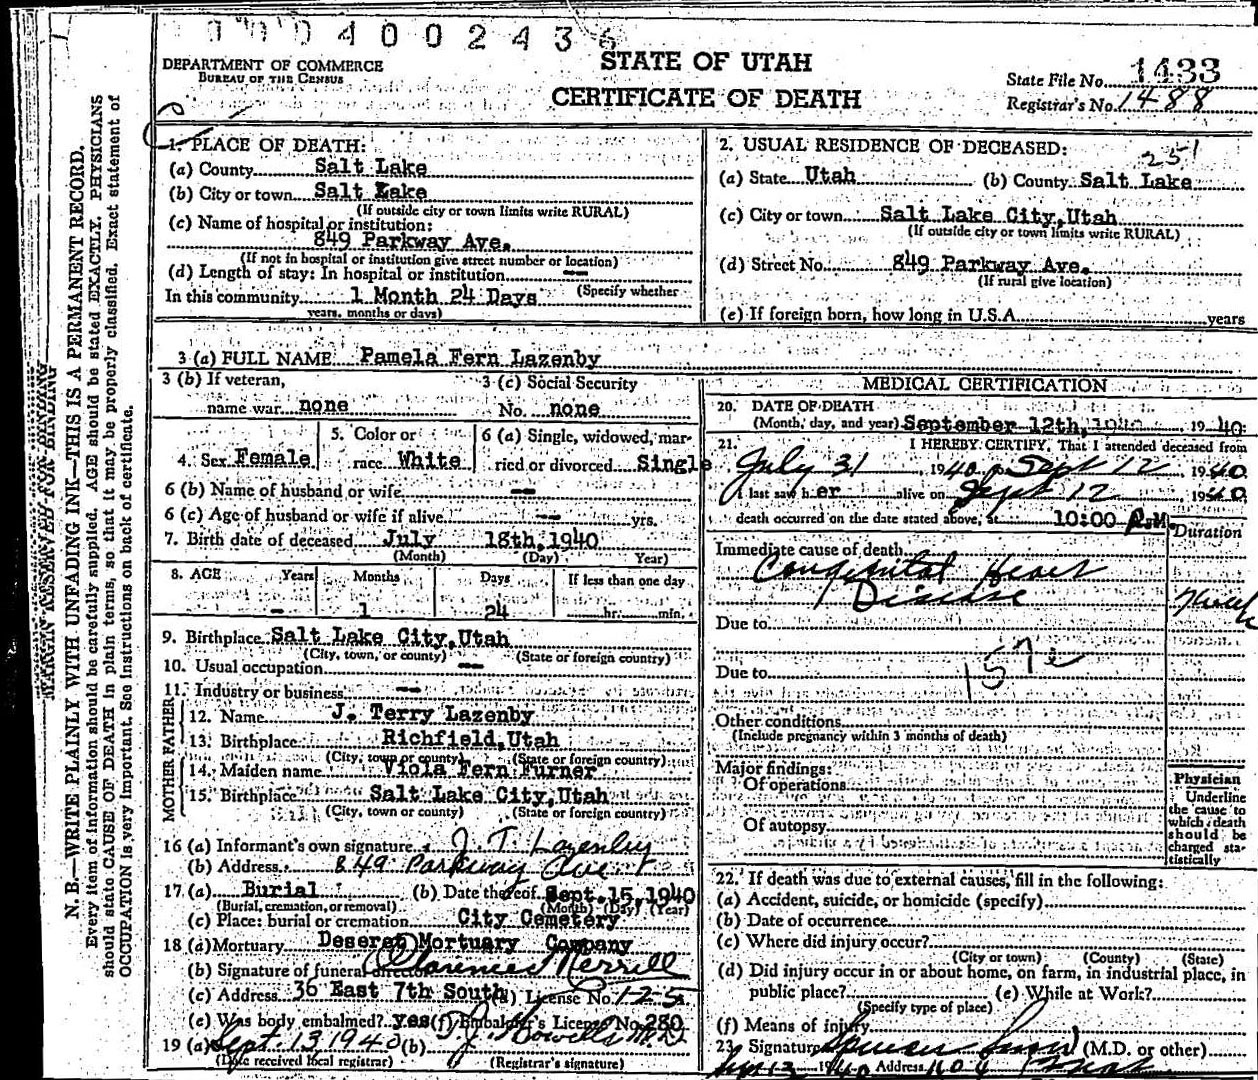 0 0 0 4 0 0 2 4 3 6
DEPARTMENT OF COMMERCE
BUREAU OF THE CENSUS
STATE OF UTAH
CERTIFICATE OF DEATH
State File No. 1433
Registrar's No. 1488
1. PLACE OF DEATH:
(a) County Salt Lake
(b) City or town Salt Lake
(If outside city or town limits write RURAL)
(c) Name of hospital or institution:
849 Parkway Ave.
(If not in hospital or institution give street number or location)
(d) Length of stay: In hospital or institution --
(Specify whether
In this community 1 Month 24 Days
years, months or days)
2. USUAL RESIDENCE OF DECEASED:
251
(a) State Utah (b) County Salt Lake
(c) City or town Salt Lake City, Utah
(If outside city or town limits write RURAL)
(d) Street No. 849 Parkway Ave.
(If rural give location)
(e) If foreign born, how long in U.S.A. years
3 (a) FULL NAME Pamela Fern Lazenby
3 (b) If veteran,
name war none
3 (c) Social Security
No. none
4. Sex Female
5. Color or
race White
6 (a) Single, widowed, mar-
ried or divorced Single
6 (b) Name of husband or wife --
6 (c) Age of husband or wife if alive -- yrs.
7. Birth date of deceased July 18th, 1940
(Month) (Day) Year)
8. AGE Years Months Days If less than one day
- 1 24 hr. min.
9. Birthplace Salt Lake City, Utah
(City, town, or county) (State or foreign country)
10. Usual occupation --
11. Industry or business --
FATHER
12. Name J. Terry Lazenby
13. Birthplace Richfield, Utah
(City, town or county) (State or foreign country)
MOTHER
14. Maiden name Viola Fern Furner
15. Birthplace Salt Lake City, Utah
(City, town or county) (State or foreign country)
16 (a) Informant's own signature J. T. Lazenby
(b) Address 849 Parkway Ave
17 (a) Burial (b) Date thereof Sept. 15, 1940
(Burial, cremation, or removal) (Month) (Day) (Year)
(c) Place: burial or cremation City Cemetery
18 (a) Mortuary Deseret Mortuary Company
(b) Signature of funeral director Clarence Merrill
(c) Address 36 East 7th South (d) License No. 125
(e) Was body embalmed? yes (f) Embalmer's License No. 280
19 (a) Sept. 13 1940 (b) T. J. Howells M.D.
(Date received local registrar) (Registrar's signature)
MEDICAL CERTIFICATION
20. DATE OF DEATH
(Month, day, and year) September 12th, 1940 19 40
21. I HEREBY CERTIFY, That I attended deceased from
July 31 1940 to Sept 12 1940
I last saw her alive on Sept 12 1940
death occurred on the date stated above, at 10:00 P.M.
Duration
Immediate cause of death
Congenital Heart
Disease
Due to
157e
Due to
Other conditions
(Include pregnancy within 3 months of death)
Major findings:
Of operations
Of autopsy
Physician
Underline
the cause to
which death
should be
charged sta-
tistically
22. If death was due to external causes, fill in the following:
(a) Accident, suicide, or homicide (specify)
(b) Date of occurrence
(c) Where did injury occur?
(City or town) (County) (State)
(d) Did injury occur in or about home, on farm, in industrial place, in
public place? (e) While at Work?
(Specify type of place)
(f) Means of injury
23. Signature Spencer Snow (M.D. or other)
1940 Address
MARGIN RESERVED FOR BINDING
N. B.—WRITE PLAINLY WITH UNFADING INK—THIS IS A PERMANENT RECORD.
Every item of information should be carefully supplied. AGE should be stated EXACTLY. PHYSICIANS
should state CAUSE OF DEATH in plain terms, so that it may be properly classified. Exact statement of
OCCUPATION is very important. See instructions on back of certificate.